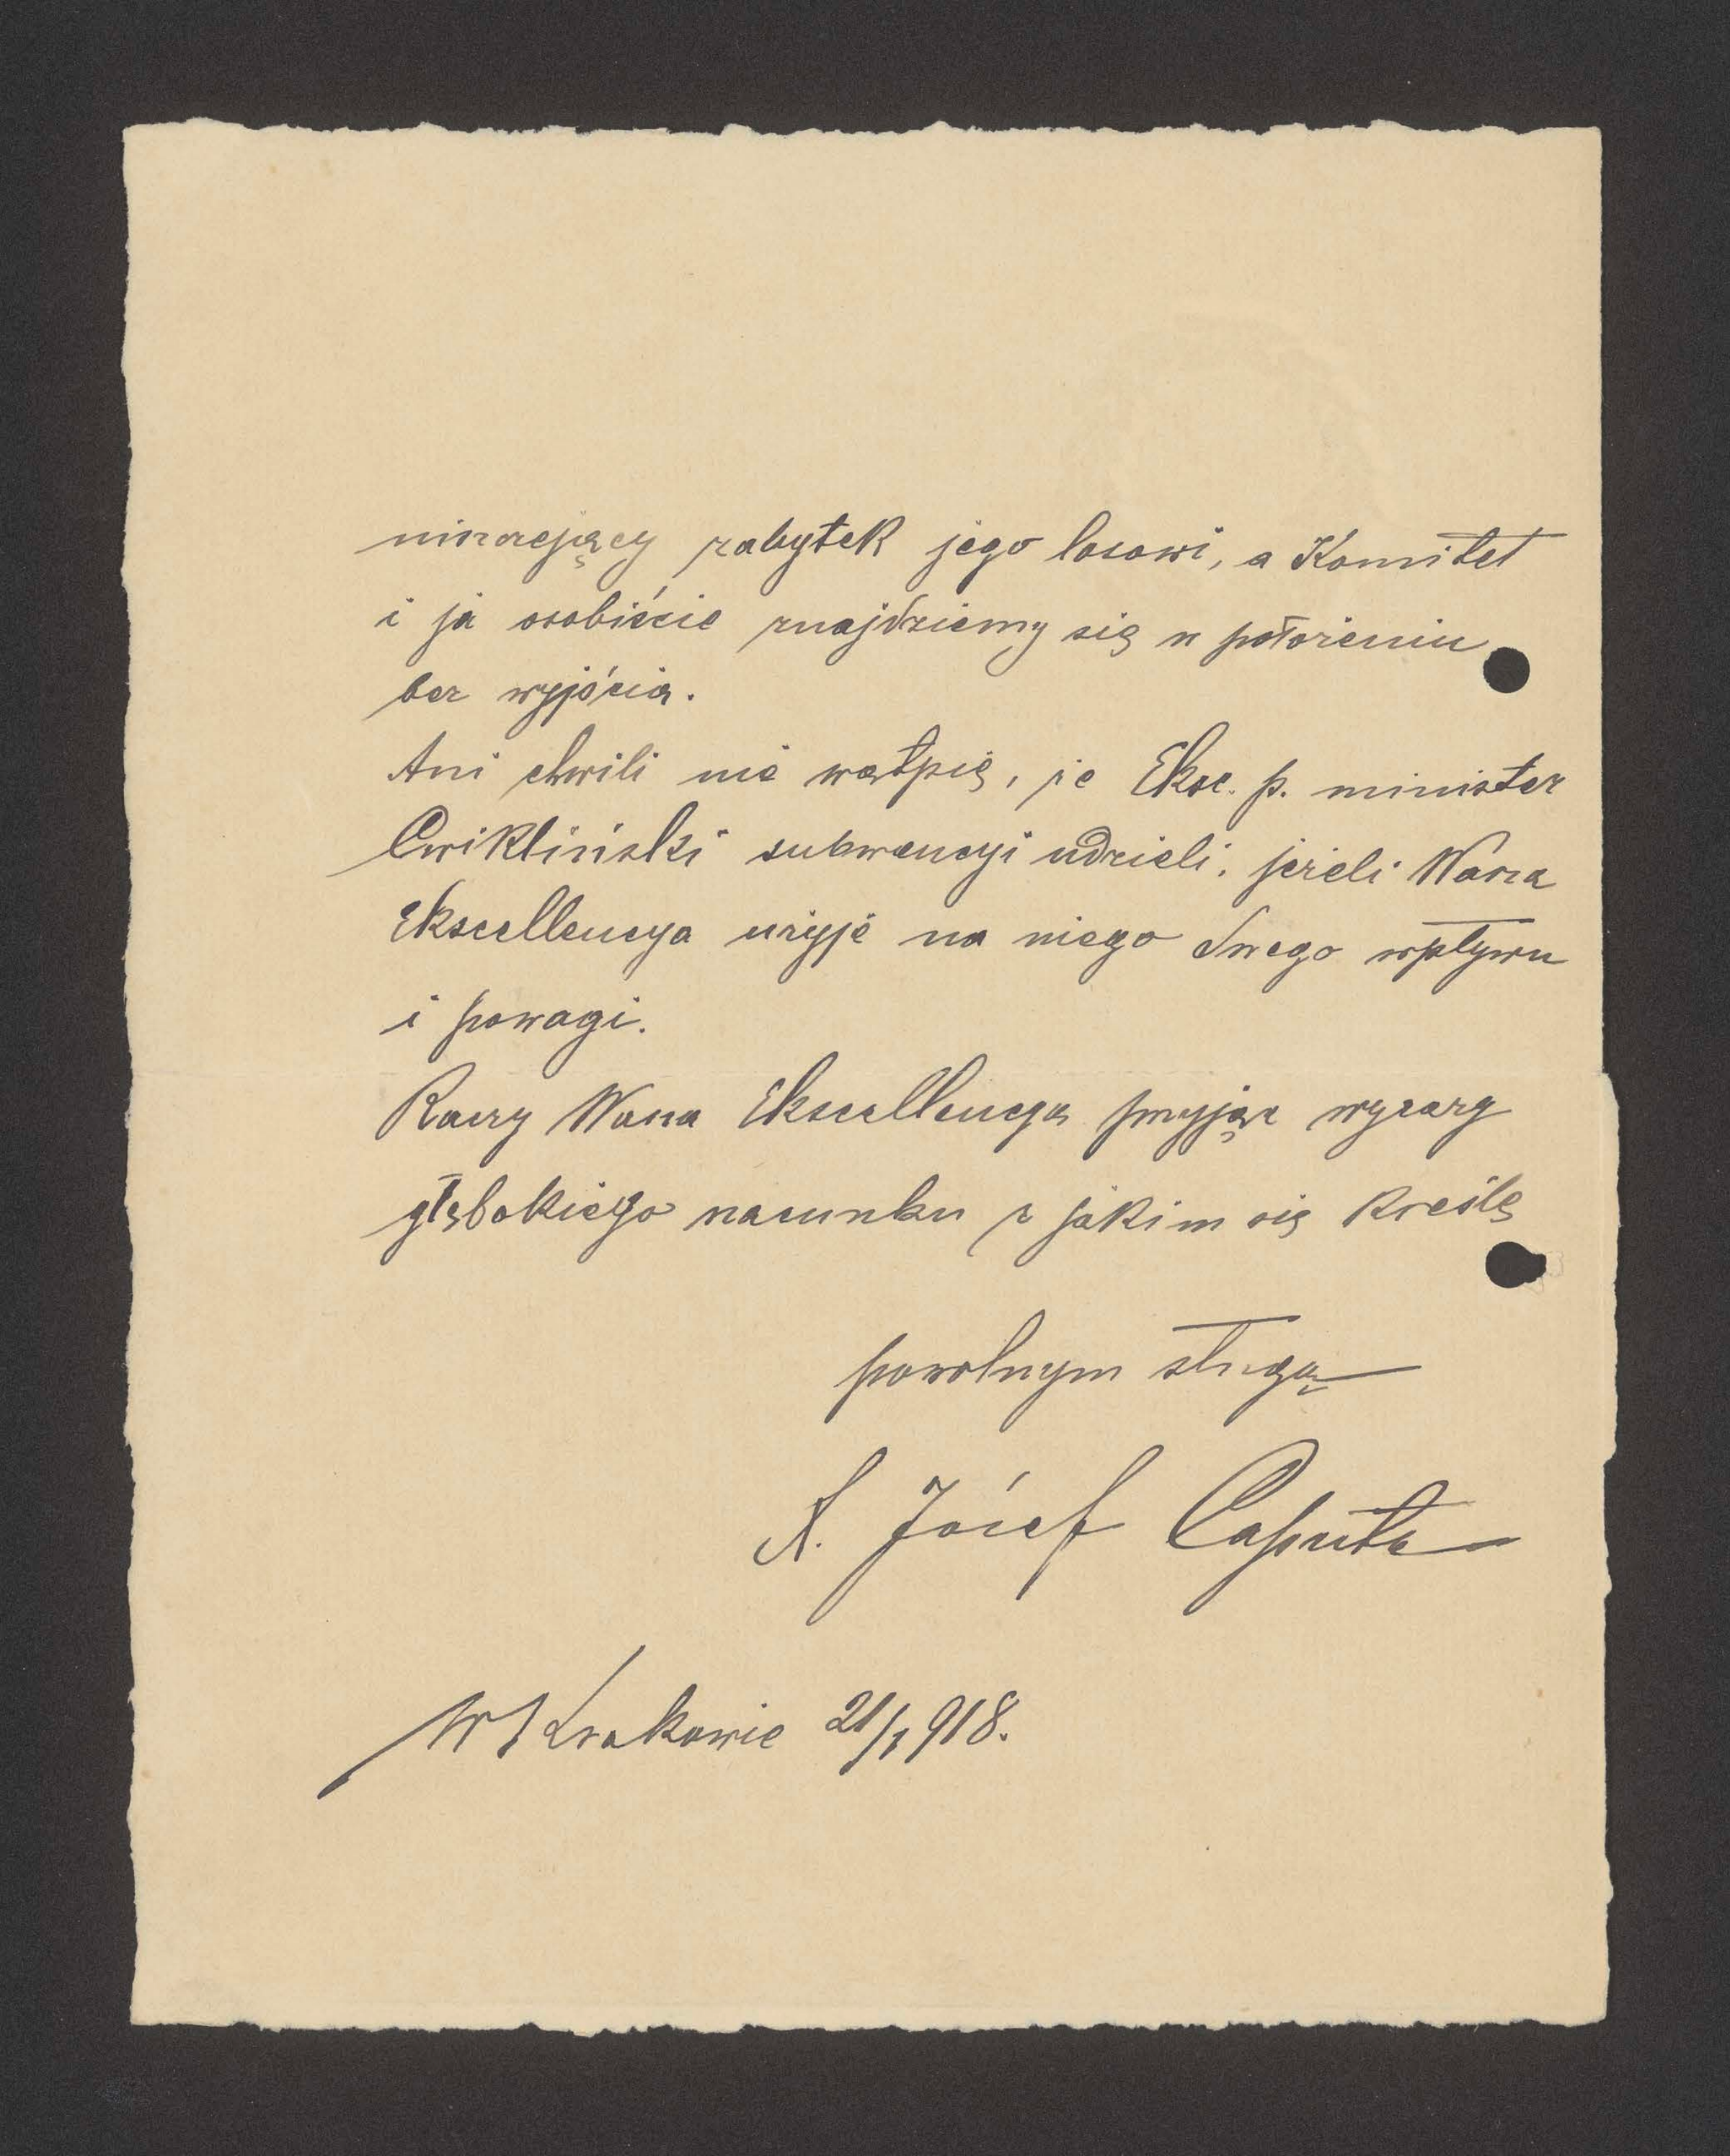 niszczejący zabytek jego losowi, a Komitet
i ja osobiście znajdziemy się w położeniu
bez wyjścia.
Ani chwili nie wątpię, że Eksc. p. minister
Cwikliński subwencyi udzieli, jeżeli Wasza
Ekscellencya użyje na niego Swego wpływu
i powagi.
Raczy Wasza Ekscellencya przyjąć wyrazy
głębokiego szacunku z jakim się kreślę
powolnym sługą
X. Józef Caputa
W Krakowie 21/I 918.